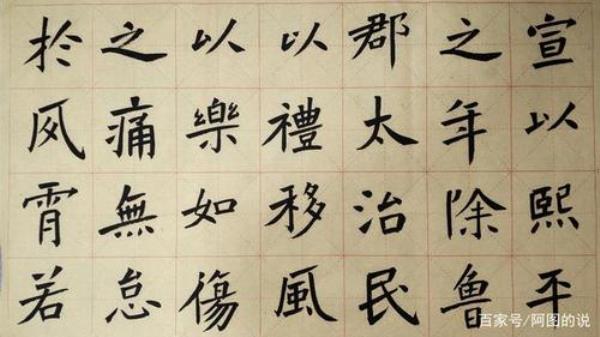 宣以熙平
之年除魯
郡太治民
以禮移風
以樂如傷
之痛無怠
於夙霄若
百家号/阿图的说